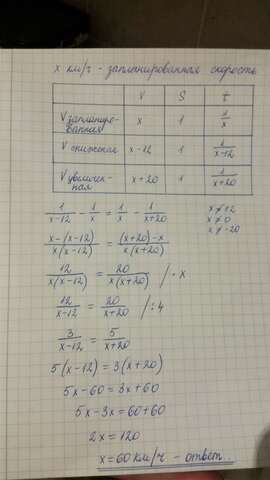 x км/ч - запланированная скорость
V S t
V запланиро-ванная x 1 1/x
V сниженая x-12 1 1/(x-12)
V увеличен-ная x+20 1 1/(x+20)
1/(x-12) - 1/x = 1/x - 1/(x+20) x ≠ 12
x ≠ 0
(x-(x-12))/(x(x-12)) = ((x+20)-x)/(x(x+20)) x ≠ -20
12/(x(x-12)) = 20/(x(x+20)) / · x
12/(x-12) = 20/(x+20) /:4
3/(x-12) = 5/(x+20)
5(x-12) = 3(x+20)
5x-60 = 3x+60
5x-3x = 60+60
2x = 120
x = 60 км/ч - ответ..